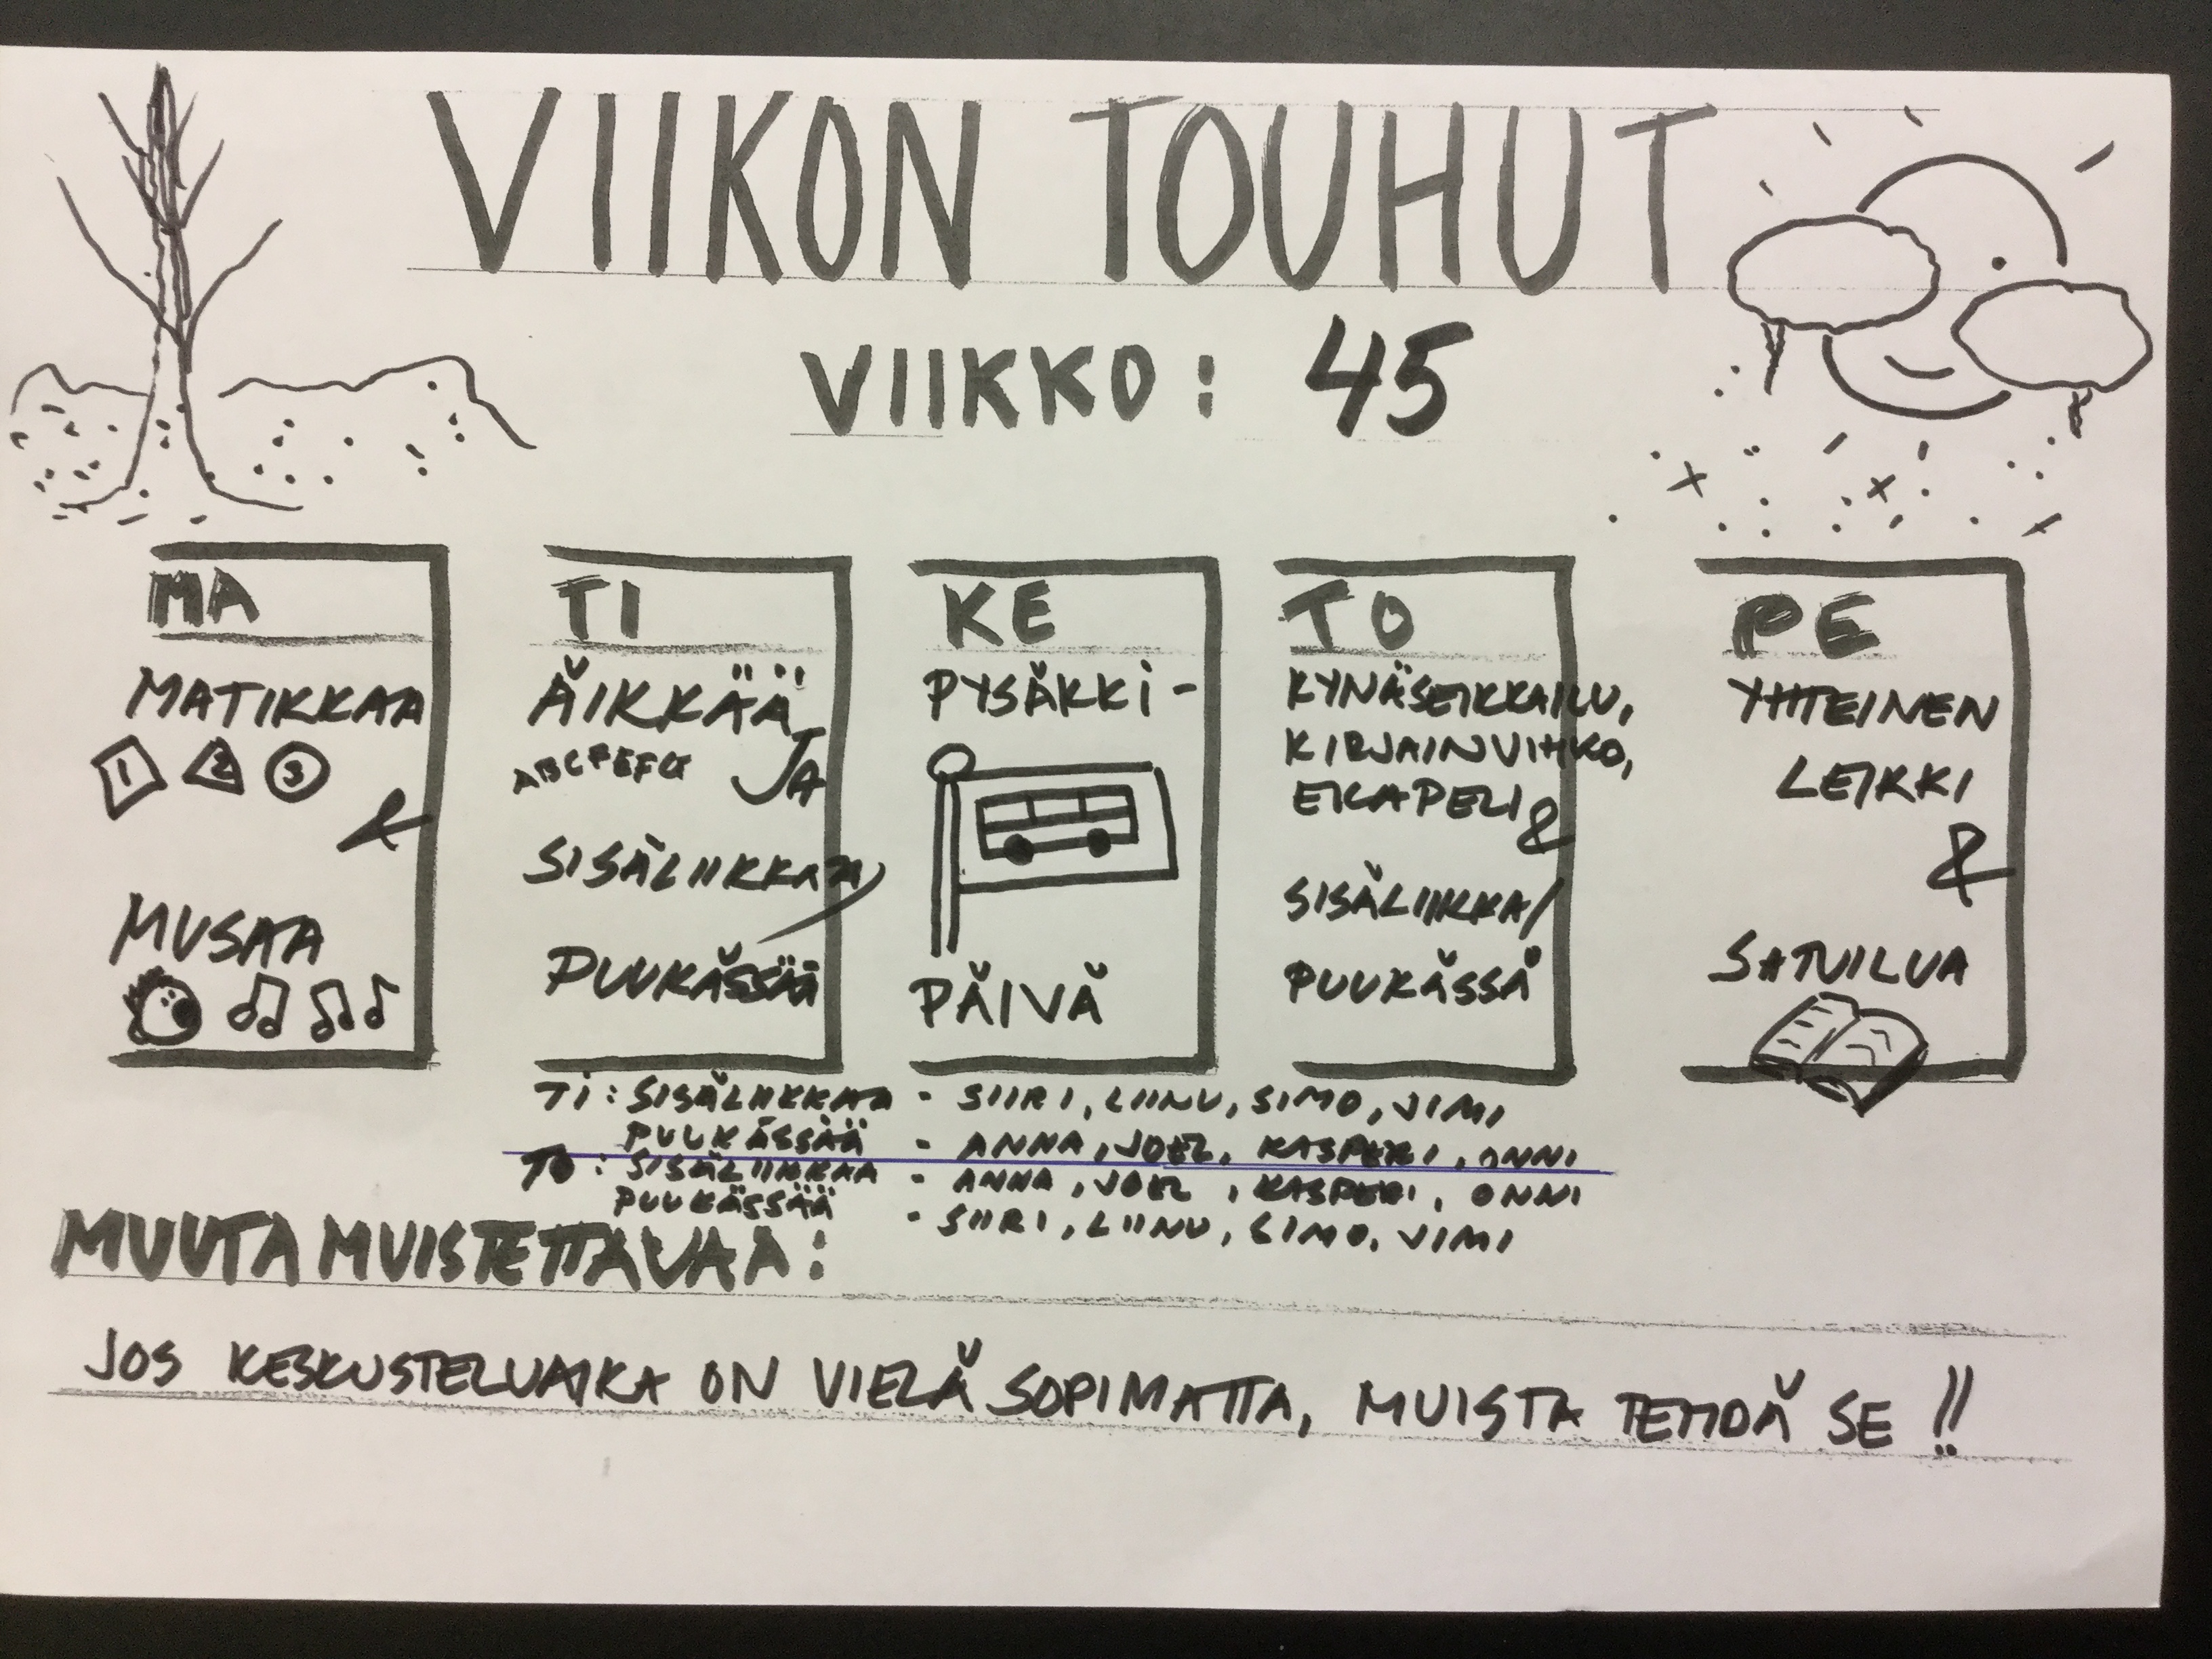 VIIKON TOUHUT
VIIKKO: 45
MA
MATIKKAA
1 2 3
&
MUSAA
TI
ÄIKKÄÄ
ABCDEFG JA
SISÄLIIKKAA/
PUUKÄSSÄÄ
KE
PYSÄKKI-
PÄIVÄ
TO
KYNÄSEIKKAILU,
KIRJAINVIHKO,
EKAPELI &
SISÄLIIKKA/
PUUKÄSSÄ
PE
YHTEINEN
LEIKKI
&
SATUILUA
TI: SISÄLIIKKAA - SIIRI, LIINU, SIMO, JIMI
PUUKÄSSÄÄ - ANNA, JOEL, KASPERI, ONNI
TO: SISÄLIIKKAA - ANNA, JOEL, KASPERI, ONNI
PUUKÄSSÄÄ - SIIRI, LIINU, SIMO, JIMI
MUUTA MUISTETTAVAA:
JOS KESKUSTELUAIKA ON VIELÄ SOPIMATTA, MUISTA TEHDÄ SE!!